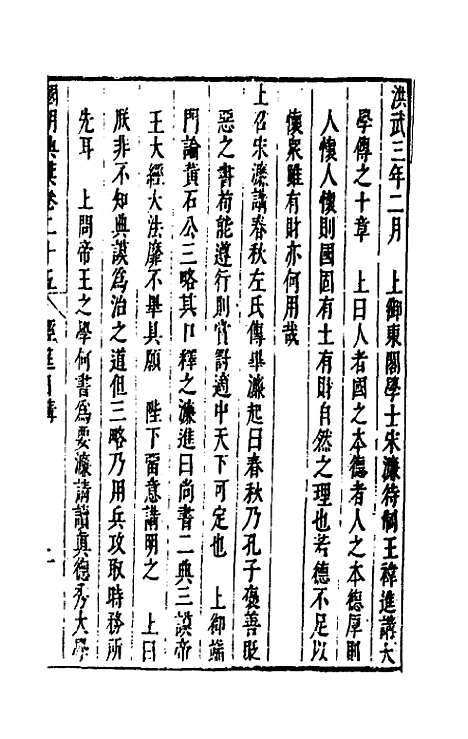 洪武三年二月　上御東閣學士宋濂待制王禕進講大
學傳之十章　上曰人者國之本德者人之本德厚則
人懷人懷則國固有土有財自然之理也若德不足以
懷衆雖有財亦何用哉
上召宋濂講春秋左氏傳畢濂起曰春秋乃孔子褒善貶
惡之書苟能遵行則賞罰適中天下可定也　上御端
門論黃石公三略其口釋之濂進曰尚書二典三謨帝
王大經大法靡不畢具願　陛下畱意講明之　上曰
朕非不知典謨為治之道但三略乃用兵攻取時務所
先耳　上問帝王之學何書為要濂請讀真德秀大學
國朝典彙卷二十五　經筵日講　一